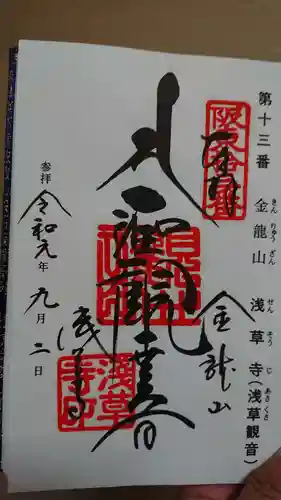 第十三番 金龍山 浅草寺(浅草観音)
きん りゅう ざん せん そう じ あさくさ
奉拝
聖観世音
金龍山
浅草寺
参拝 令和元年九月二日
浅草寺印